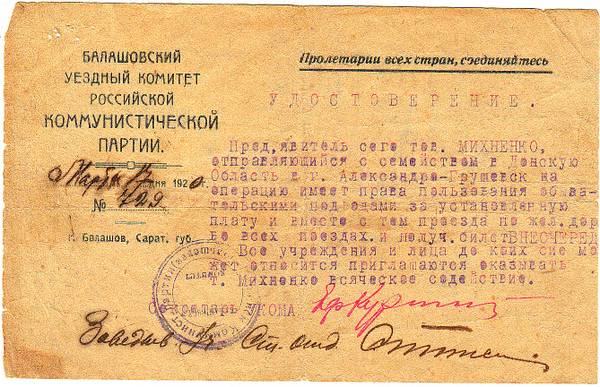 БАЛАШОВСКИЙ
УЕЗДНЫЙ КОМИТЕТ
РОССИЙСКОЙ
КОММУНИСТИЧЕСКОЙ
ПАРТИИ.
Марта 12 дня 1920
№ 729
Г. Балашов, Сарат. губ.
Пролетарии всех стран, соединяйтесь
УДОСТОВЕРЕНИЕ.
Пред,явитель сего тов. МИХНЕНКО,
отправляющийся с семейством в Донскую
Область в г. Александро-Грушевск на
операцию имеет права пользования обыва-
тельскими подводами за установленную
плату и вместе с тем проезда по жел.дор
во всех поездах.и получ.билет ВНЕОЧЕРЕД
Все учреждения и лица до коих сие мо-
жет относится приглашаются оказывать
т. Михненко всяческое содействие.
Секретарь КОМА